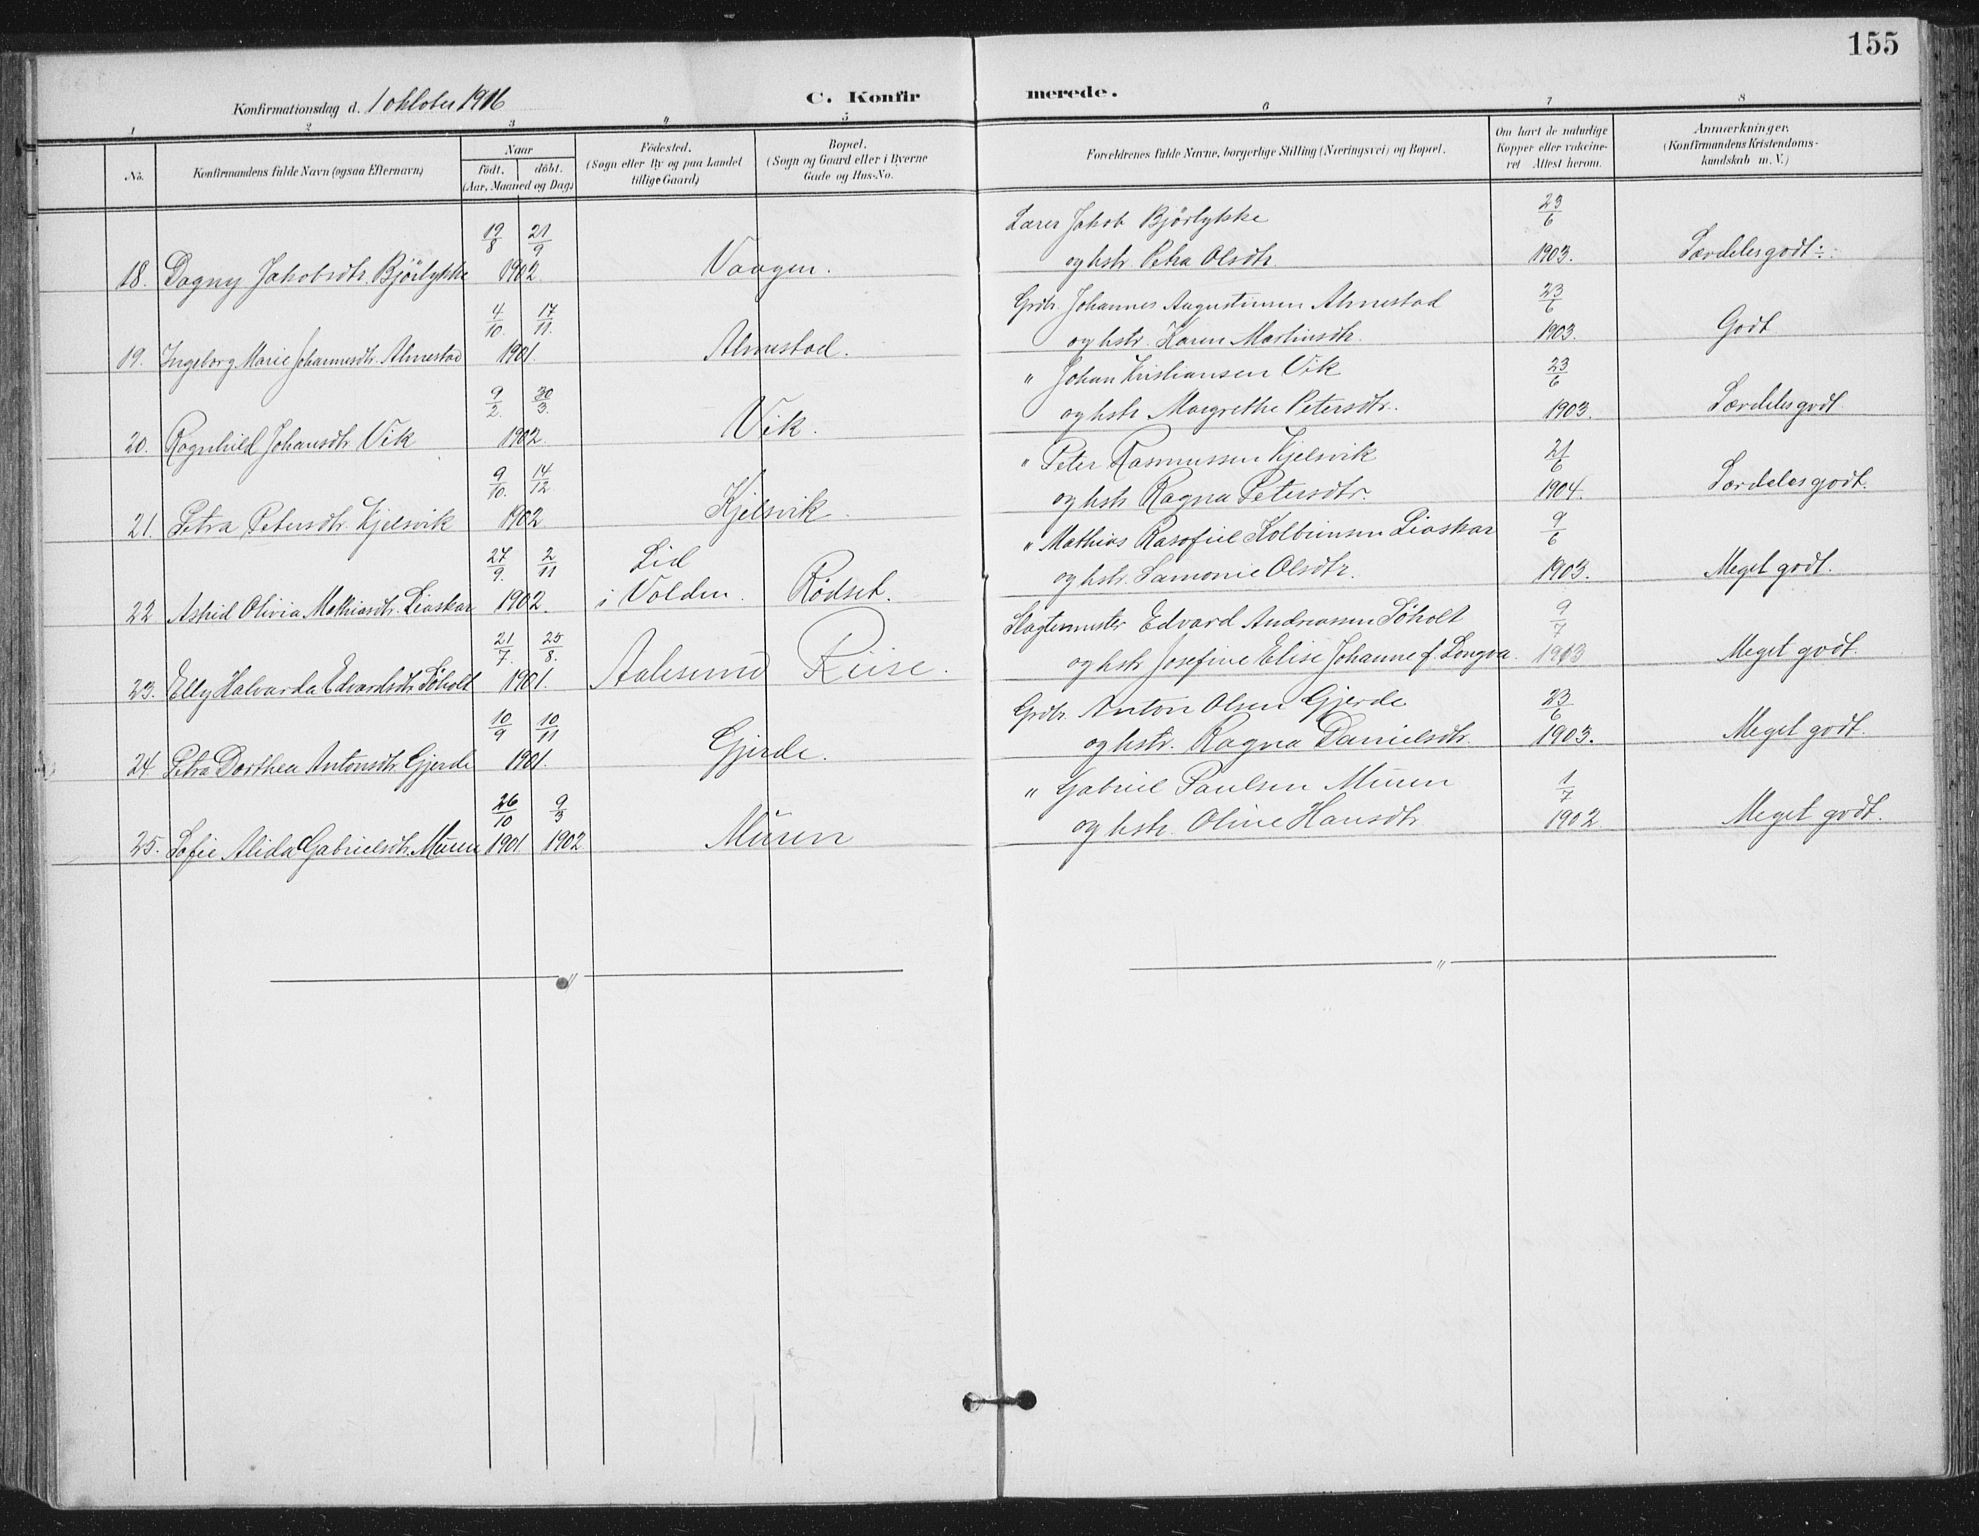 155
Konfirmationsdag d. 1 oktober 1916
C. Konfirmerede.
1 2 3 4 5 6 7 8
No.
Konfirmandens fulde Navn (ogsaa Efternavn)
Naar
födt. döbt.
(Aar, Maaned og Dag)
Födested.
(Sogn eller By og paa Landet
tillige Gaard)
Bopæl.
(Sogn og Gaard eller i Byerne
Gade og Hus-No.
Forældrenes fulde Navne, borgerlige Stilling (Næringsvei) og Bopæl.
Om havt de naturlige
Kopper eller vakcine-
ret Attest herom.
Anmærkninger.
(Konfirmandens Kristendoms-
kundskab m. V.)
19/8 21/9 Lærer Jakob Bjørlykke 23/6
18. Dagny Jakobsdtr. Bjørlykke 1902 Vaagen. og hstr. Petra Olsdtr. 1903. Særdelesgodt÷
4/10. 17/11. Grdbr. Johannes Augustinsen Almestad 23/6
19. Ingeborg Marie Johannesdtr. Almestad 1901. Almestad. og hstr. Karen Martinsdtr. 1903. Godt
9/2. 30/3. " Johan Kristiansen Vik 23/6
20. Ragnhild Johansdtr. Vik 1902 Vik. og hstr. Margrethe Petersdtr. 1903. Særdelesgodt
9/10. 14/12 " Peter Rasmussen Kjelsvik 21/6
21. Petra Petersdtr. Kjelsvik 1902 Kjelsvik. og hstr. Ragna Petersdtr. 1904. Særdelesgodt.
27/9. 2/11 Lid " Mathias Kolbeinsen Liaskar 9/6
22 Astrid Olivia Mathiasdtr. Liaskar 1902. i Volden. Rødset. og hstr. Samonie Olsdtr. 1903. Meget godt.
21/7. 25/8. Slagtermester Edvard Andreassen Søholt 9/7
23. Elly Halvarda Edvardsdtr. Søholt 1901. Aalesund Riise. og hstr. Josefine Elise Johanne f. Longva. 1913 Meget godt.
10/9 10/11 Grdbr. Anton Olsen Gjerde 23/6
24 Petra Dorthea Antonsdtr. Gjerde 1901. Gjerde. og hstr. Ragna Danielsdtr. 1903. Meget godt.
26/10 9/3 " Gabriel Paulsen Muren 1/7
25. Sofie Alida Gabrielsdtr. Muren 1901 1902 Muren og hstr. Oline Hansdtr. 1902 Meget godt.